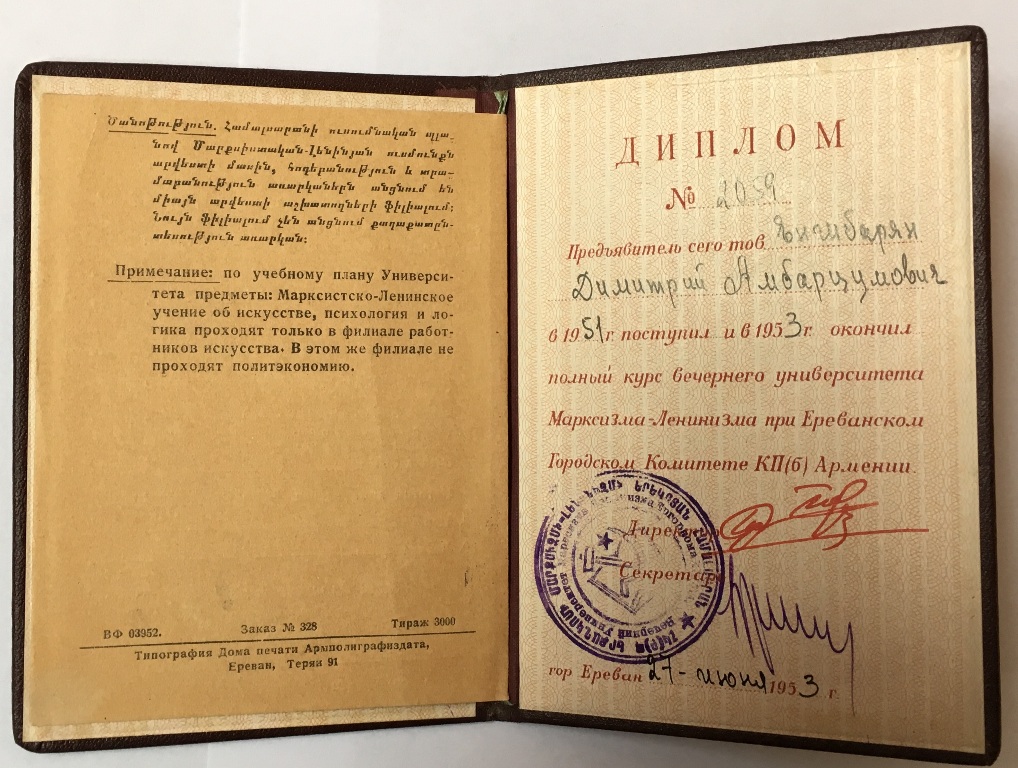 Ծանոթություն. Համալսարանի ուսումնական պլա-
նով Մարքսիստական-լենինյան ուսմունքն
արվեստի մասին, հոգեբանություն և տրա-
մաբանություն առարկաներն անցնում են
միայն արվեստի աշխատողների ֆիլիալում:
Նույն ֆիլիալում չեն անցնում քաղաքատըն-
տեսություն առարկան:
Примечание: по учебному плану Универси-
тета предметы: Марксистско-Ленинское
учение об искусстве, психология и ло-
гика проходят только в филиале работ-
ников искусства. В этом же филиале не
проходят политэкономию.
ВФ 03952. Заказ № 328 Тираж 3000
Типография Дома печати Армполиграфиздата,
Ереван, Теряи 91
ДИПЛОМ
№ 2059
Предъявитель сего тов. Енгибарян
Димитрий Амбарцумович
в 1951 г. поступил и в 1953 г. окончил
полный курс вечернего университета
Марксизма-Ленинизма при Ереванском
Городском Комитете КП(б) Армении.
Директор
Секретарь
гор Ереван 27 - июня 1953 г.